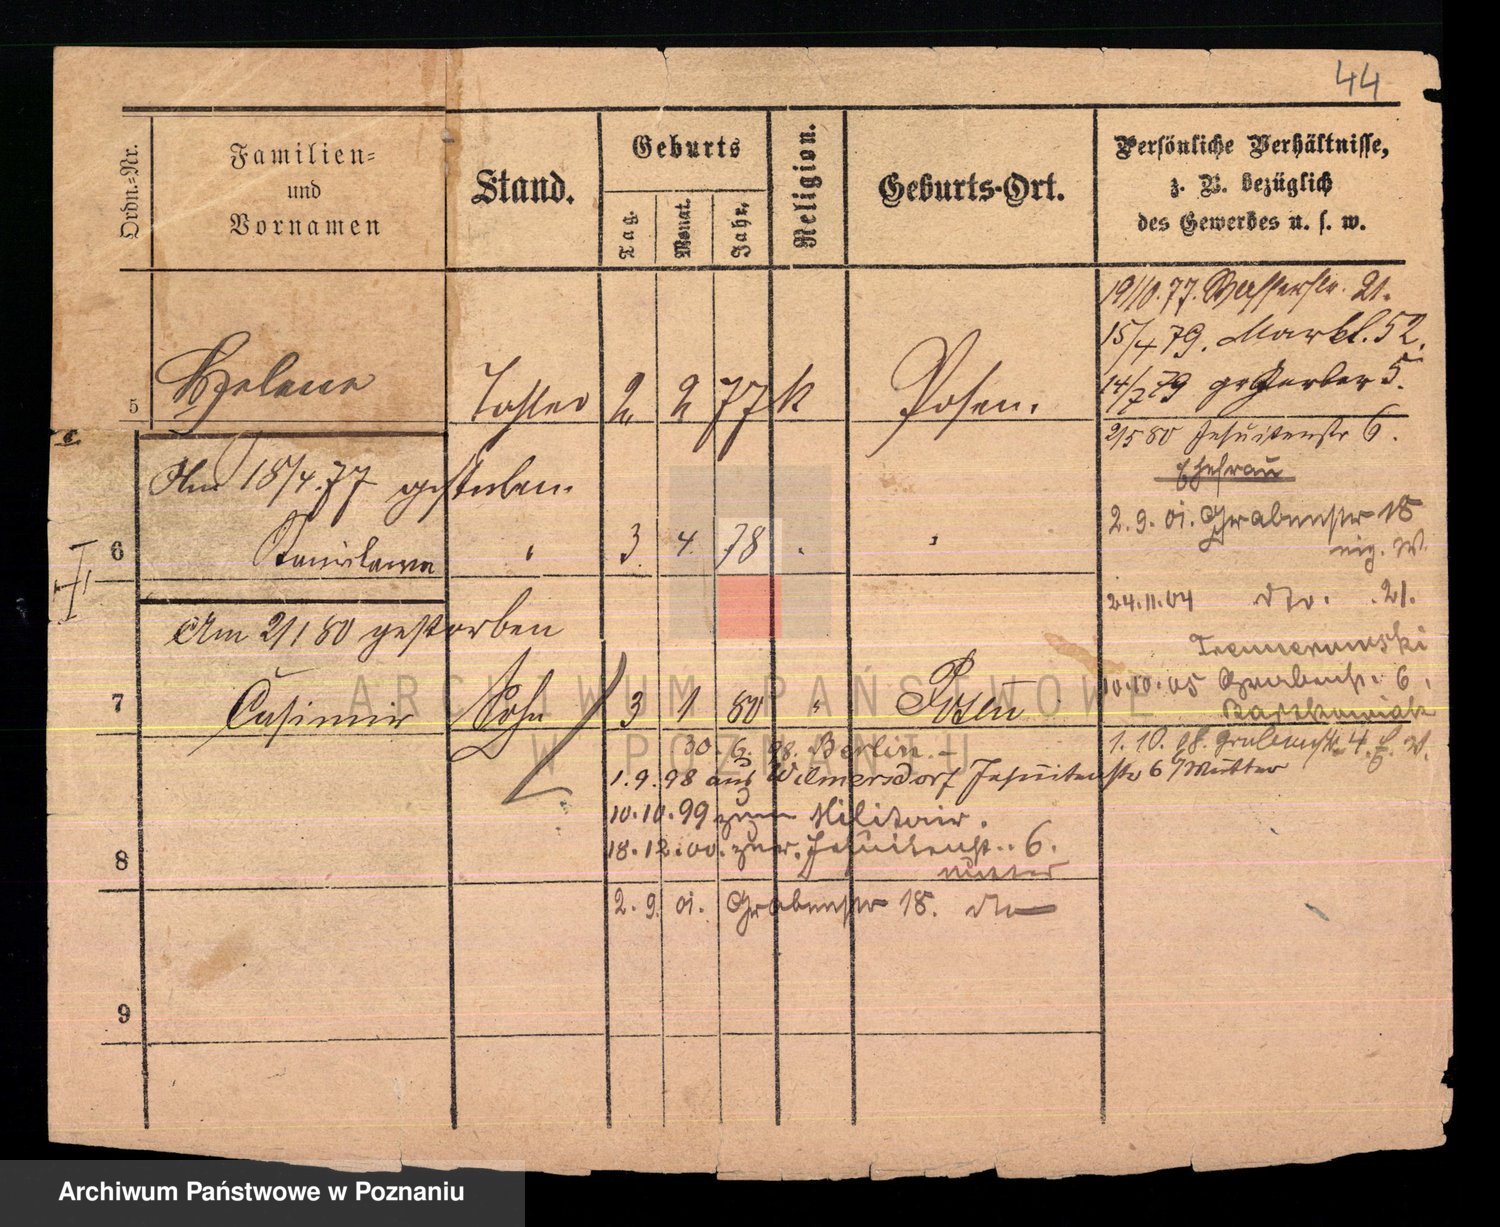 44
Ordn.-Nr.
Familien-
und
Vornamen
Stand.
Geburts
Tag.
Monat.
Jahr.
Religion.
Geburts-Ort.
Persönliche Verhältnisse,
z. B. bezüglich
des Gewerbes u. s. w.
19/10.77. Wasserstr. 21.
15/4 79. Markt. 52.
14/7 79 gr Gerber 5.
5 Helene Tochter 2 2 77 k Posen.
2/5 80 Jesuitenstr 6.
Am 18/4.77 gestorben.
Ehefrau
2. 9. 01. Grabenstr 18
6 Stanislawa " 3 4. 78 " "
24.11.04 dto. 21.
Am 2/1 80 gestorben
7 Casimir Sohn 3 1 80 " Posen
10.10.05 Grabenst. 6,
Bartkowiak
30. 6. 98. Berlin. -
1. 10. 08. Grabenstr. 4.
1. 9. 98 aus Wilmersdorf Jesuitenstr 6 Mutter
10.10.99 zum Militair.
8
18.12.00. zur. Jesuitenst.. 6.
Mutter
2. 9. 01. Grabenstr 18. dto
9
ARCHIWUM PAŃSTWOWE
W POZNANIU
Archiwum Państwowe w Poznaniu